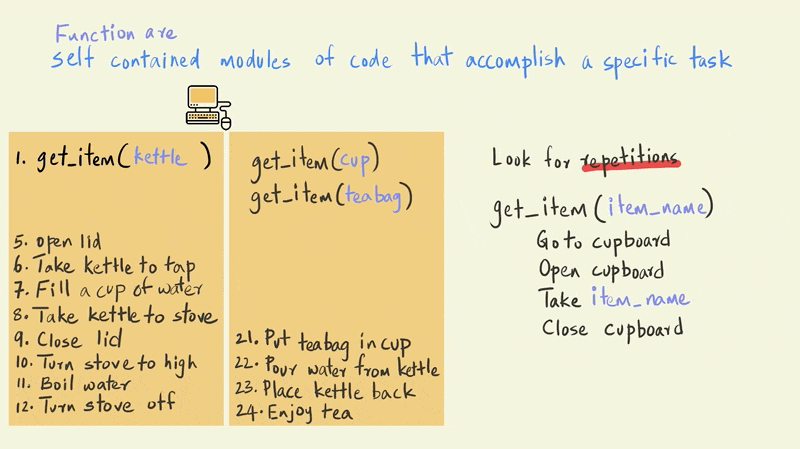 Function are
self contained modules of code that accomplish a specific task
1. get_item(kettle )
5. open lid
6. Take kettle to tap
7. Fill a cup of water
8. Take kettle to stove
9. Close lid
10. Turn stove to high
11. Boil water
12. Turn stove off
get_item(cup)
get_item(teabag)
21. Put teabag in cup
22. Pour water from kettle
23. Place kettle back
24. Enjoy tea
Look for repetitions
get_item(item_name)
Go to cupboard
Open cupboard
Take item_name
Close cupboard